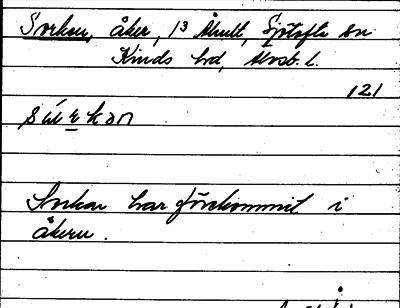 Sorkan, åker, 1³ Ahult, Sjötofta sn
Kinds hd, Älvsb. l.
121
Sorkar har förekommit i
åkern.